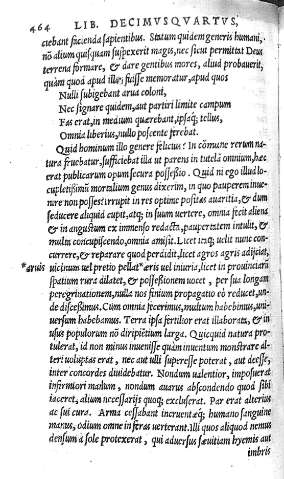 464 LIB. DECIMVSQVARTVS,
ciebant facienda sapientibus. Statum quidem generis humani,
nõ alium quisquam suspexerit magis, nec si cut permittat Deus
terrena formare, & dare gentibus mores, aliud probauerit,
quàm quod apud illos fuisse memoratur, apud quos
Nulli subigebant arua coloni,
Nec signare quidem, aut partiri limite campum
Fas erat, in medium quærebant, ipsaq; tellus,
Omnia liberius, nullo poscente ferebat.
Quid hominum illo genere felicius? In cõmune rerum na-
tura fruebatur, sufficiebat illa ut parens in tutelã omnium, hæc
erat publicarum opum secura possessio. Quid ni ego illud lo-
cupletissimũ mortalium genus dixerim, in quo pauperem inue-
nire non posses? irrupit in res optime positas auaritia, & dum
seducere aliquid cupit, atq; in suum uertere, omnia fecit aliena
& in angustum ex immenso redacta, paupertatem intulit, &
multa concupiscendo, omnia amisit. Licet itaq; uelit nunc con-
currere, & reparare quod perdidit, licet agros agris adijciat,
*æris uicinum uel pretio pellat *æris uel iniuria, licet in prouinciarũ
spatium rura dilatet, & possessionem uocet, per sua longam
peregrinationem, nulla nos finium propagatio eò reducet, un-
de discessimus. Cum omnia fecerimus, multum habebimus, uni-
uersum habebamus. Terra ipsa fertilior erat illaborata, & in
usus populorum nõ diripiẽtium larga. Quicquid natura pro-
tulerat, id non minus inuenisse quàm inuentum monstrare al-
teri uoluptas erat, nec aut ulli superesse poterat, aut deesse,
inter concordes diuidebatur. Nondum ualentior, imposuerat
infirmiori manum, nondum auarus abscondendo quod sibi
iaceret, alium necessarijs quoq; excluserat. Par erat alterius
ac sui cura. Arma cessabant incruentæq; humano sanguine
manus, odium omne in feras uerterant. Illi quos aliquod nemus
densum à sole protexerat, qui aduersus sæuitiam hyemis aut
imbris